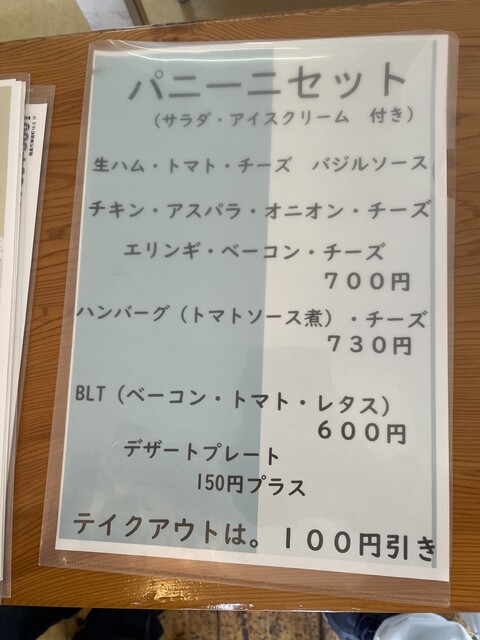 パニーニセット
（サラダ・アイスクリーム　付き）
生ハム・トマト・チーズ　バジルソース
チキン・アスパラ・オニオン・チーズ
エリンギ・ベーコン・チーズ
７００円
ハンバーグ（トマトソース煮）・チーズ
７３０円
BLT（ベーコン・トマト・レタス）
６００円
デザートプレート
150円プラス
テイクアウトは。１００円引き